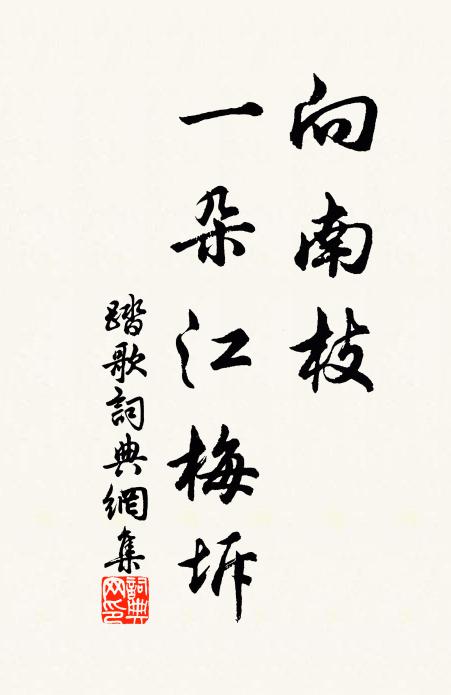 向南枝
一朵江梅坼
踏歌詞典網集
詞典网印